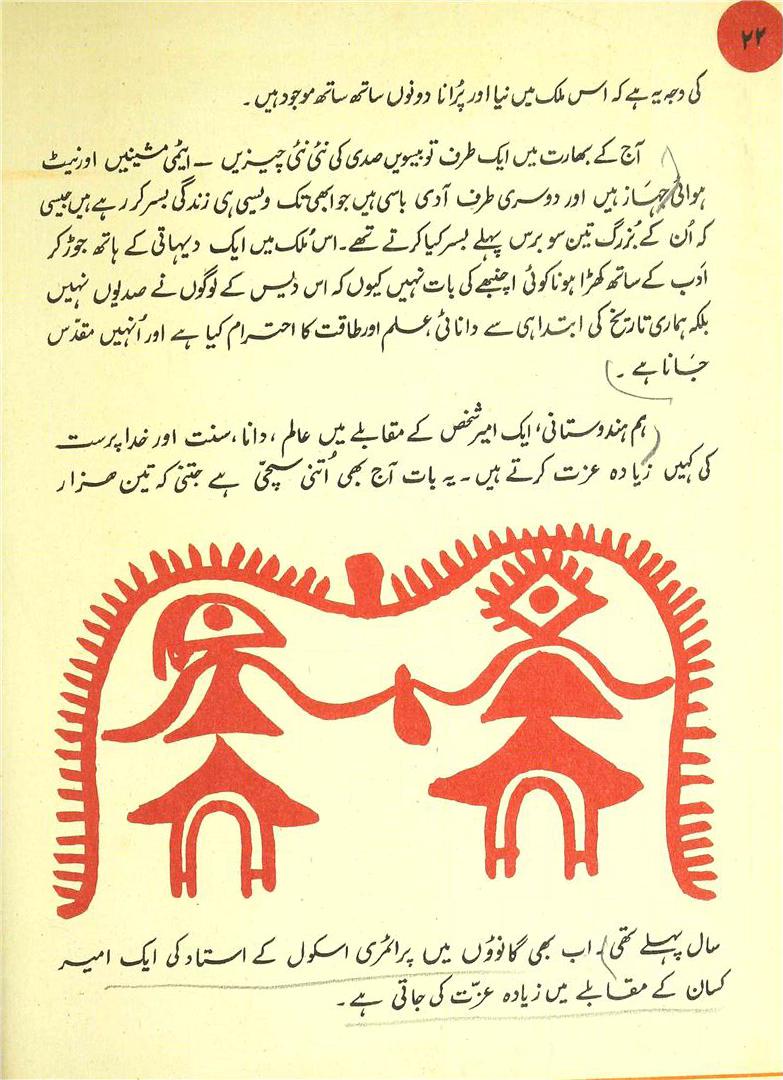 ۲۲
کی وجہ یہ ہے کہ اس ملک میں نیا اور پُرانا دونوں ساتھ ساتھ موجود ہیں۔
آج کے بھارت میں ایک طرف تو بیسویں صدی کی نئی نئی چیزیں – ایٹمی مشینیں اور نیٹ
ہوائی جہاز ہیں اور دوسری طرف آدی باسی ہیں جو ابھی تک ویسی ہی زندگی بسر کر رہے ہیں جیسی
کہ اُن کے بُزرگ تین سو برس پہلے بسر کیا کرتے تھے۔ اس مُلک میں ایک دیہاتی کے ہاتھ جوڑ کر
اَدب کے ساتھ کھڑا ہونا کوئی اچنبھے کی بات نہیں کیوں کہ اس دیس کے لوگوں نے صدیوں نہیں
بلکہ ہماری تاریخ کی ابتدا ہی سے دانائی، علم اور طاقت کا احترام کیا ہے اور اُنہیں مقدّس
جانا ہے۔
ہم ہندوستانی، ایک امیر شخص کے مقابلے میں عالم، دانا، سنت اور خدا پرست
کی کہیں زیادہ عزت کرتے ہیں۔ یہ بات آج بھی اُتنی سچّی ہے جتنی کہ تین ہزار
سال پہلے تھی۔ اب بھی گانوؤں میں پرائمری اسکول کے استاد کی ایک امیر
کسان کے مقابلے میں زیادہ عزّت کی جاتی ہے۔